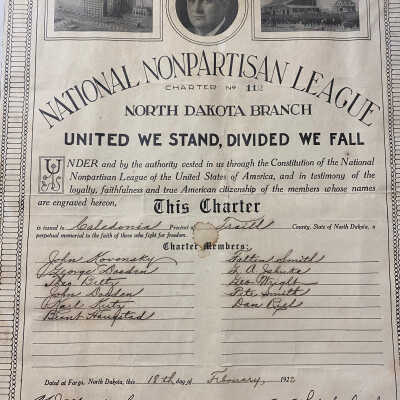 NATIONAL NONPARTISAN LEAGUE
CHARTER No 112
NORTH DAKOTA BRANCH
UNITED WE STAND, DIVIDED WE FALL
UNDER and by the authority vested in us through the Constitution of the National
Nonpartisan League of the United States of America, and in testimony of the
loyalty, faithfulness and true American citizenship of the members whose names
are engraved hereon,
This Charter
is issued to Caledonia Precinct of Traill County, State of North Dakota, a
perpetual memorial to the faith of those who fight for freedom.
Charter Members:
John Kovansky Smith
George Bowden
Theo Betty Geo Wright
John Bowden Pete Smith
Karl Dan
Bernt Haugstad
Dated at Fargo, North Dakota, this 18th day of February, 192